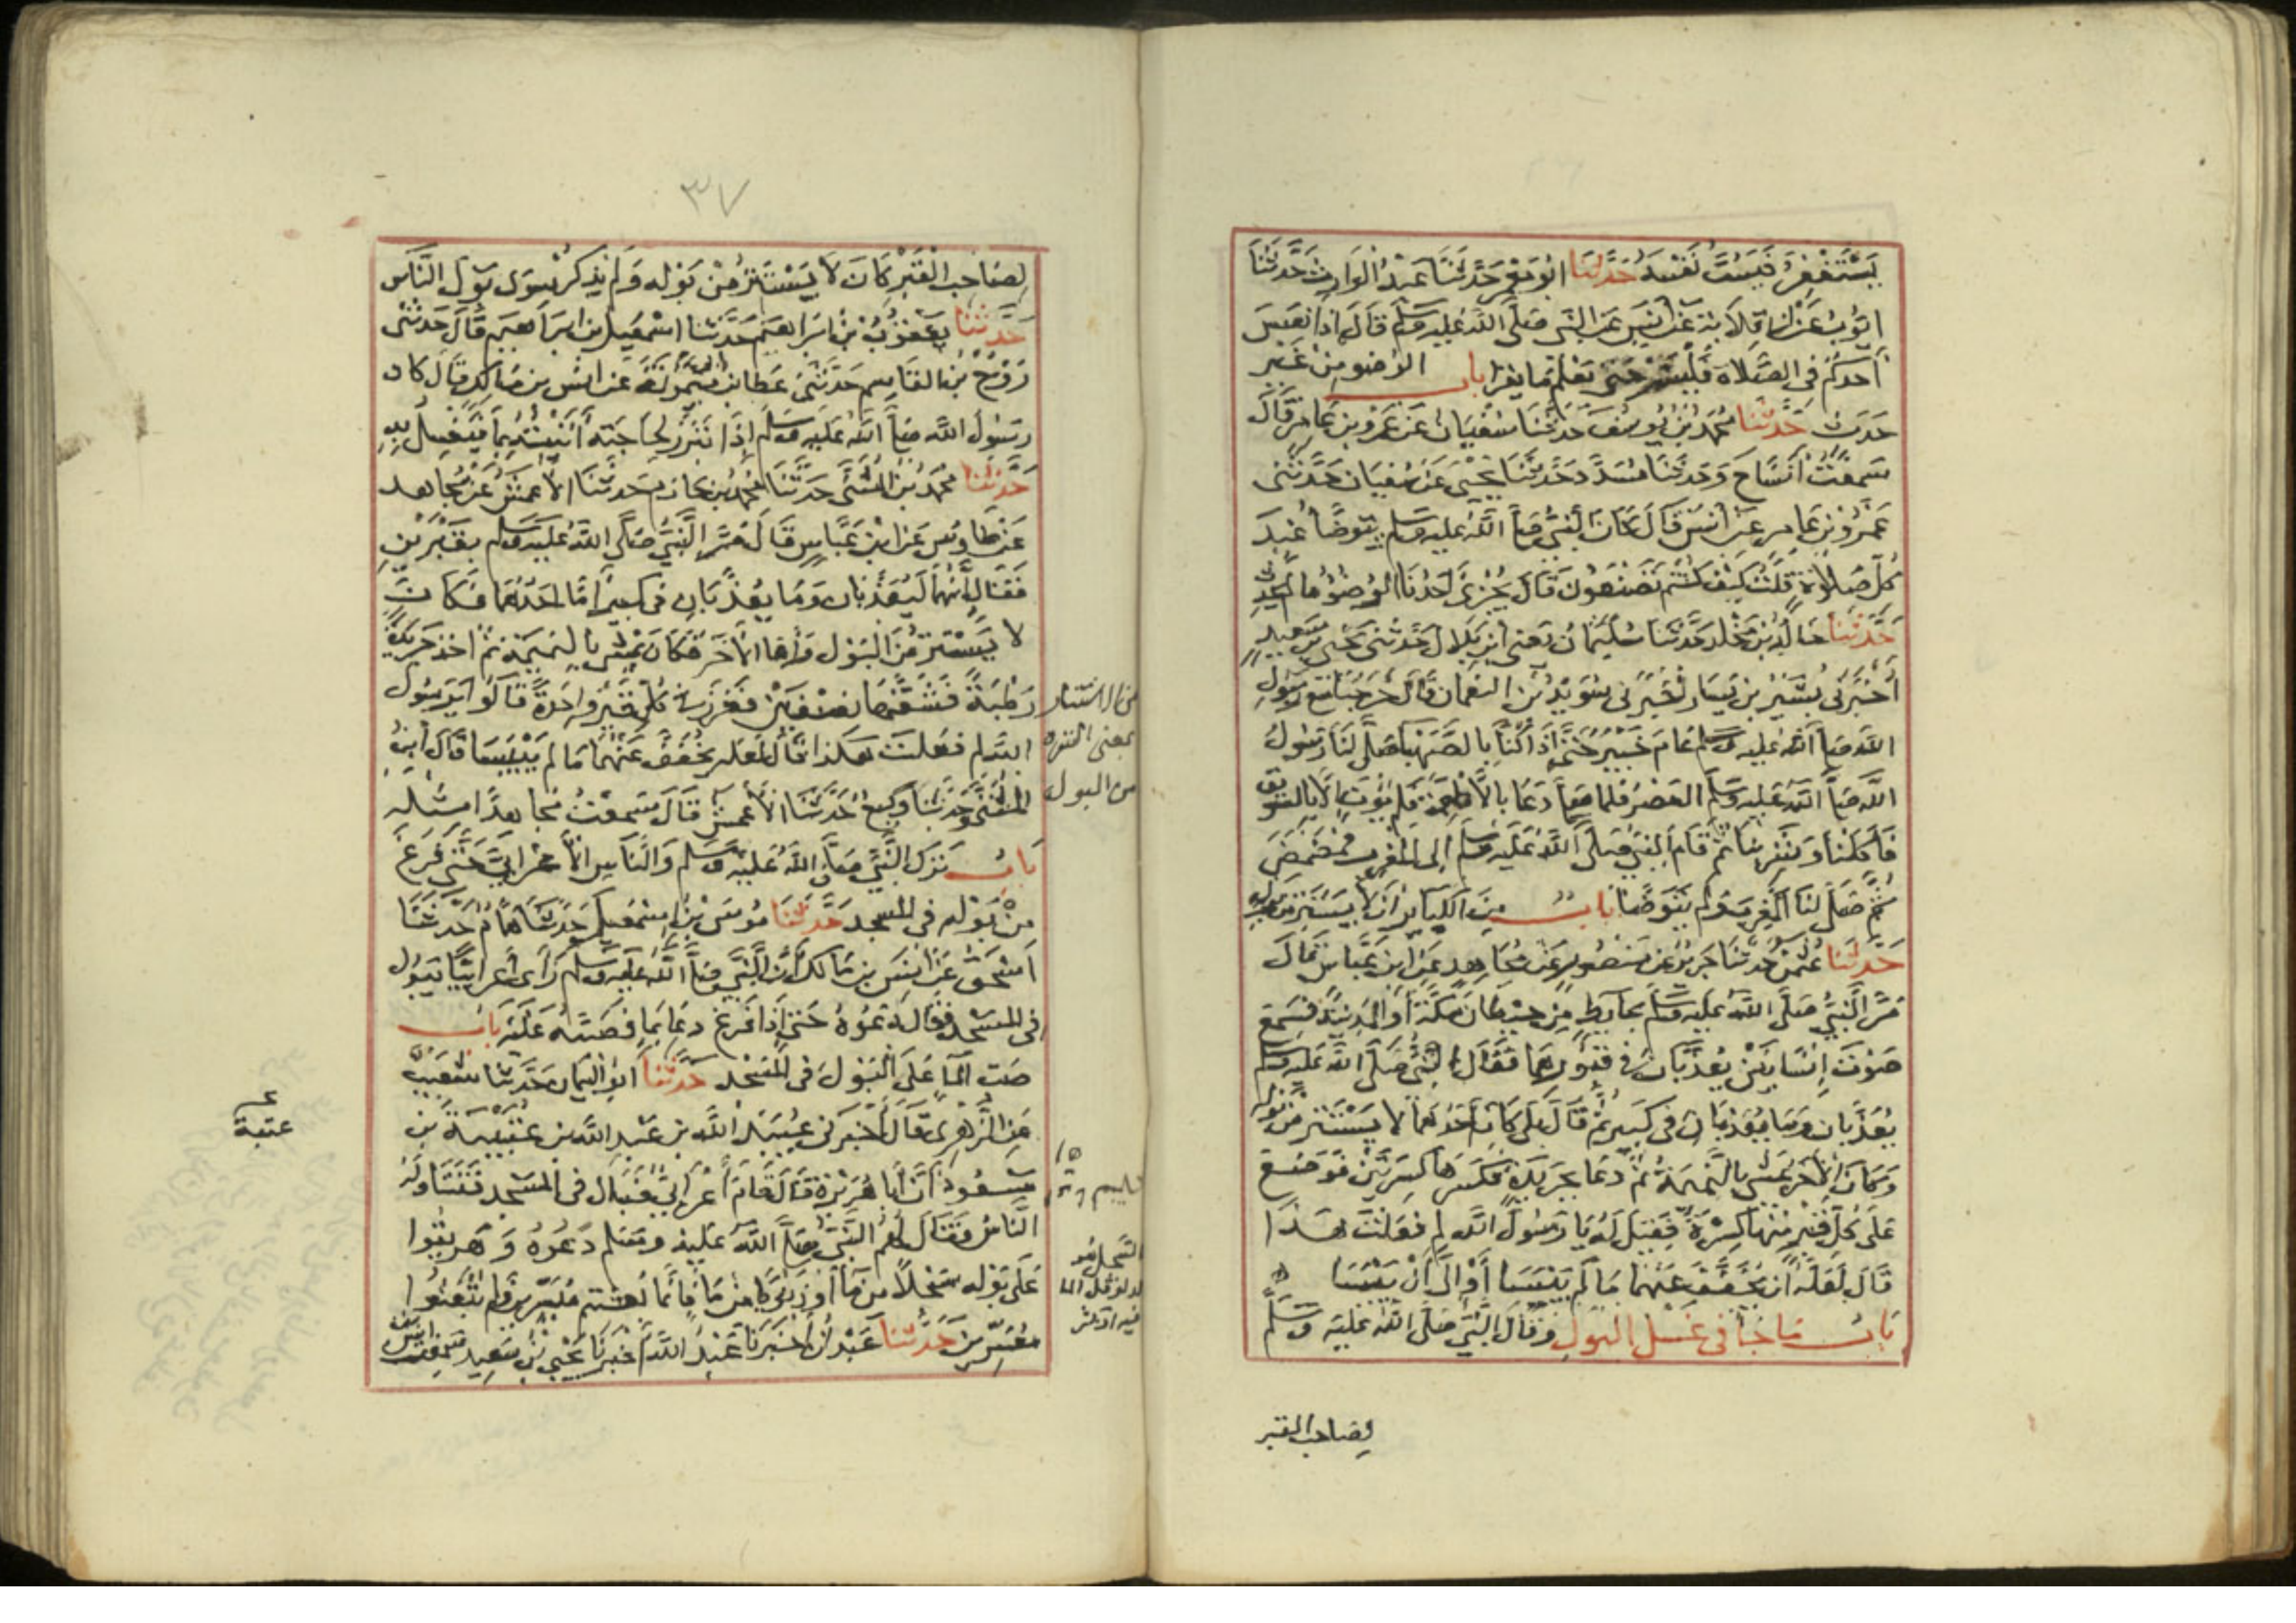 يَسْتَغْفِرُ فَيَسُبَّ نَفْسَهُ حَدَّثَنَا ابُو مَعْمَرٍ حَدَّثَنَا عَبْدُ الْوَارِثِ حَدَّثَنَا
ايُّوبُ عَنْ ابى قِلَابَةَ عَنْ أَنَسٍ عَنِ النَّبِى صَلَّى اللَّهُ عَلَيه وَسَلم قَالَ إذَا نَعَسَ
أَحَدُكُمْ فِي الصَّلاة فَلْيَنَمْ حَتى يَعْلَمَ مَا يَقْرَأُ باب الوُضوءِ مِنْ غَير
حَدَثٍ حَدَّثَنَا مُحَمَّد بْنُ يُوسُفَ حَدَّثَنَا سُفْيَانُ عَنْ عَمْرو بْنِ عَامِرٍ قَالَ
سَمِعْتُ أَنَسًا ح وَحَدَّثَنَا مُسَدَّد حَدَّثَنَا يَحْيَى عَنْ سُفْيَانَ حَدَّثَنِى
عَمْرُو بْنُ عَامِرٍ عَنْ أَنَسٍ قَالَ كَانَ النَّبِىُّ صَلَّى اللَّهُ عَليه وسَلم يَتَوَضَّأُ عِنْدَ
كُلِّ صَلاةٍ قُلْتُ كَيْفَ كُنْتُمْ تَصْنَعُونَ قَالَ يُجْزِئُ أَحَدَنَا الْوُضُوءُ مَا لَمْ يُحْدِث
حَدَّثَنَا خَالِدُ بْنُ مَخْلَدٍ حَدَّثَنَا سُلَيْمَانُ يَعنى ابْنَ بِلَالٍ حَدَّثَنِى يَحْيَى بْنُ سَعِيدٍ
أَخْبَرَنِى بُشَيْرُ بْنُ يَسَارٍ أَخْبَرَنِى سُوَيْدُ بْنُ النعْمَانِ قَالَ خَرَجْنَا مَعَ رَسُولِ
اللَّهِ صَلَّى اللَّهُ عَلَيه وَسَلم عَامَ خَيْبَرَ حَتَّى إذَا كُنَّا بِالصَّهْبَاءِ صَلَّى لَنَا رَسُولُ
اللَّهِ صَلَّى اللَّهُ عَلَيه وَسَلم الْعَصْرَ فَلما صَلَّى دَعَا بِالْأَطْعِمَةِ فَلَم يُؤْتَ إلَّا بِالسَّوِيقِ
فَأَكَلْنَا وَشَرِبْنَا ثُمَّ قَامَ النَّبِىُّ صَلَّى اللَّهُ عَلَيه وَسَلم إلَى الْمَغْرِبِ فَمَضْمَضَ
ثُمَّ صَلَّى لَنَا الْمَغْرِبَ وَلَم يَتَوَضَّأْ بَابٌ مِنَ الْكَبَائِرِ أَنْ لَا يَسْتَتِرَ مِنْ بَوْلِهِ
حَدَّثَنَا عُثْمنُ حَدَّثَنَا جَرِيرٌ عَنْ مَنْصُورٍ عَنْ مُجَاهِدٍ عَنِ ابْنِ عَبَّاسٍ قَالَ
مَرَّ النَّبِىُّ صَلَّى اللَّهُ عَلَيه وَسَلم بِحَائِطٍ مِنْ حِيطَانِ مَكَّةَ أَوِ الْمَدِينَةِ فَسَمِعَ
صَوْتَ إنْسَانَيْنِ يُعَذَّبَانِ فِى قُبُورِهِمَا فَقَالَ النَّبِىُّ صَلَّى اللَّهُ عَلَيه وَسَلم
يُعَذَّبَانِ وَمَا يُعَذَّبَانِ فِى كَبِيرٍ ثُمَّ قَالَ بَلَى كَانَ أَحَدُهُمَا لَا يَسْتَتِرُ مِنْ بَوْلِه
وَكَانَ الْآخَرُ يَمْشِى بِالنَّمِيمَةِ ثُمَّ دَعَا بِجَرِيدَةٍ فَكَسَرَهَا كِسْرَتَيْنِ فَوَضَعَ
عَلَى كُلِّ قَبْرٍ مِنْهُمَا كِسْرَةً فَقِيلَ لَهُ يَا رَسُولَ اللَّهِ لِمَ فَعَلْتَ هَذَا
قَالَ لَعَلَّهُ ان يُخَفَّفَ عَنْهُمَا مَا لَمْ يَيْبَسَا أَوْ الَى أَنْ يَيْبَسَا
بَابُ مَا جَاء فى غَسْلِ البَوْلِ وَقَالَ النَّبِىُّ صَلَّى اللهُ عَلَيْهِ وَسَلَّمَ
لِصَاحب القبر
٣٧
لِصَاحِبِ الْقَبْرِ كَانَ لَا يَسْتَتِرُ مِنْ بَوْلِهِ وَلَم يَذْكُرْ سِوَى بَوْلِ النَّاسِ
حَدَّثَنَا يَعْقُوبُ بْنُ ابْرَاهِيمَ حَدَّثَنَا اسْمعِيلُ بن ابْرَاهِيمَ قَالَ حَدَّثَنِى
رَوْحُ بْنُ القَاسِمِ حَدَّثَنِى عَطَاء بن أبى مَيْمُونَةَ عَنْ انَسِ بنِ مَالِكٍ قَالَ كَانَ
رَسُولُ اللَّهِ صَلَّى اللَّهُ عَلَيه وَسَلم إذَا تَبَرَّزَ لِحَاجَتِهِ أَتَيْتُهُ بِمَاءٍ فَيَغْسِلُ بِهِ
حَدَّثَنَا مُحَمَّدُ بْنُ الْمُثَنَّى حَدَّثَنَا مُحَمَّدُ بْنُ خَازِمٍ حَدَّثَنَا الْأَعْمَشُ عَنْ مُجَاهدٍ
عَنْ طَاوُسٍ عَنِ ابْنِ عَبَّاسٍ قَالَ مَرَّ النَّبِىُّ صَلَّى اللَّهُ عَلَيه وَسَلم بِقَبْرَيْنِ
فَقَالَ إنَّهُمَا لَيُعَذَّبَانِ وَمَا يُعَذَّبَانِ فِى كَبِيرٍ أَمَّا احَدُهُمَا فَكَانَ
لا يَسْتَتِرُ مِنَ الْبَوْلِ وَأَمَّا الْآخَرُ فَكَانَ يَمْشِى بِالنَّمِيمَةِ ثُمَّ اخَذَ جَرِيدَةً
رَطْبَةً فَشَقَّهَا نِصْفَيْنِ فَغَرَزَ فى كُلِّ قَبْرٍ وَاحِدَةً قَالُوا يَا رَسُولَ
اللَّهِ لِمَ فَعَلْتَ هَذَا قَالَ لَعَلَّهُ يُخَفَّفُ عَنْهُمَا مَا لَمْ يَيْبَسَا قَالَ ابنُ
الْمُثَنَّى وَحَدَّثَنَا وَكِيعٌ حَدَّثَنَا الْأَعْمَشُ قَالَ سَمِعْتُ مُجَاهِدًا مِثْلَهُ
بَابُ تَرْكِ النَّبِىِّ صَلَّى اللَّهُ عَلَيْهِ وَسَلم وَالنَّاسِ الْأَعْرَابِىَّ حَتَّى فَرَغَ
مِنْ بَوْلِهِ فى الْمَسجِد حَدَّثَنَا مُوسَى بْنُ اسْمعِيلَ حَدَّثَنَا هَمَّامٌ حَدَّثَنَا
اسْحَقُ عَنْ انَسِ بنِ مَالِكٍ أَنَّ النَّبِىَّ صَلَّى اللَّهُ عَلَيه وَسَلم رَأَى أَعْرَابِيًّا يَبُولُ
فى الْمَسْجِدِ فَقَالَ دَعُوهُ حَتى إذَا فَرَغَ دَعَا بِمَاءٍ فَصَبَّهُ عَلَيْهِ بَابُ
صَبِّ الْمَاءِ عَلَى الْبَوْلِ فى الْمَسْجِدِ حَدَّثَنَا ابُو الْيَمَانِ حَدَّثَنَا شُعَيْبٌ
عَنِ الزُّهْرِى قَالَ أَخْبَرَنِى عُبَيْدُ اللَّهِ بن عَبْدِ اللَّهِ بن عُتْبَةَ بن
مَسْعُودٍ أَنَّ أَبَا هُرَيْرَةَ قَالَ قَامَ أَعْرَابِىٌّ فَبَالَ فى الْمَسْجِدِ فَتَنَاوَلَهُ
النَّاسُ فَقَالَ لَهُمُ النَّبِىُّ صَلَّى اللَّهُ عَلَيْهِ وسَلم دَعُوهُ وَهَرِيقُوا
عَلَى بَوْلِهِ سَجْلًا مِنْ مَاء أَوْ ذَنُوبًا مِنْ مَاء فَإنَّمَا بُعِثْتُم مُيَسِّرِينَ وَلَم تُبْعَثُوا
مُعَسِّرِينَ حَدَّثَنَا عَبْدَانُ أَخْبَرَنَا عَبْدُ اللَّهِ أَخْبَرَنَا يَحْيَى بْنُ سَعِيدٍ سَمِعْتُ انَسَ
من الاستتار
بمعنى التنزه
من البول
السجل هو
عتبة